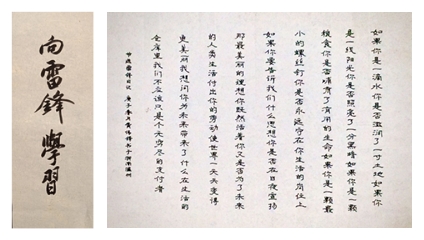 向雷鋒學習
如果你是一滴水你是否滋润了一寸土地如果你
是一线阳光你是否照亮了一分黑暗如果你是一颗
粮食你是否哺育了有用的生命如果你是一颗最
小的螺丝钉你是否永远守在你生活的岗位上
如果你要告诉我们什么思想你是否在日夜宣扬
那最美丽的理想你既然活着你又是否为了未来
的人类生活付出你的劳动使世界一天天变得
更美丽我想问你为未来带来了什么在生活的
仓库里我们不应该只是个无穷尽的支付者
节选雷锋日记